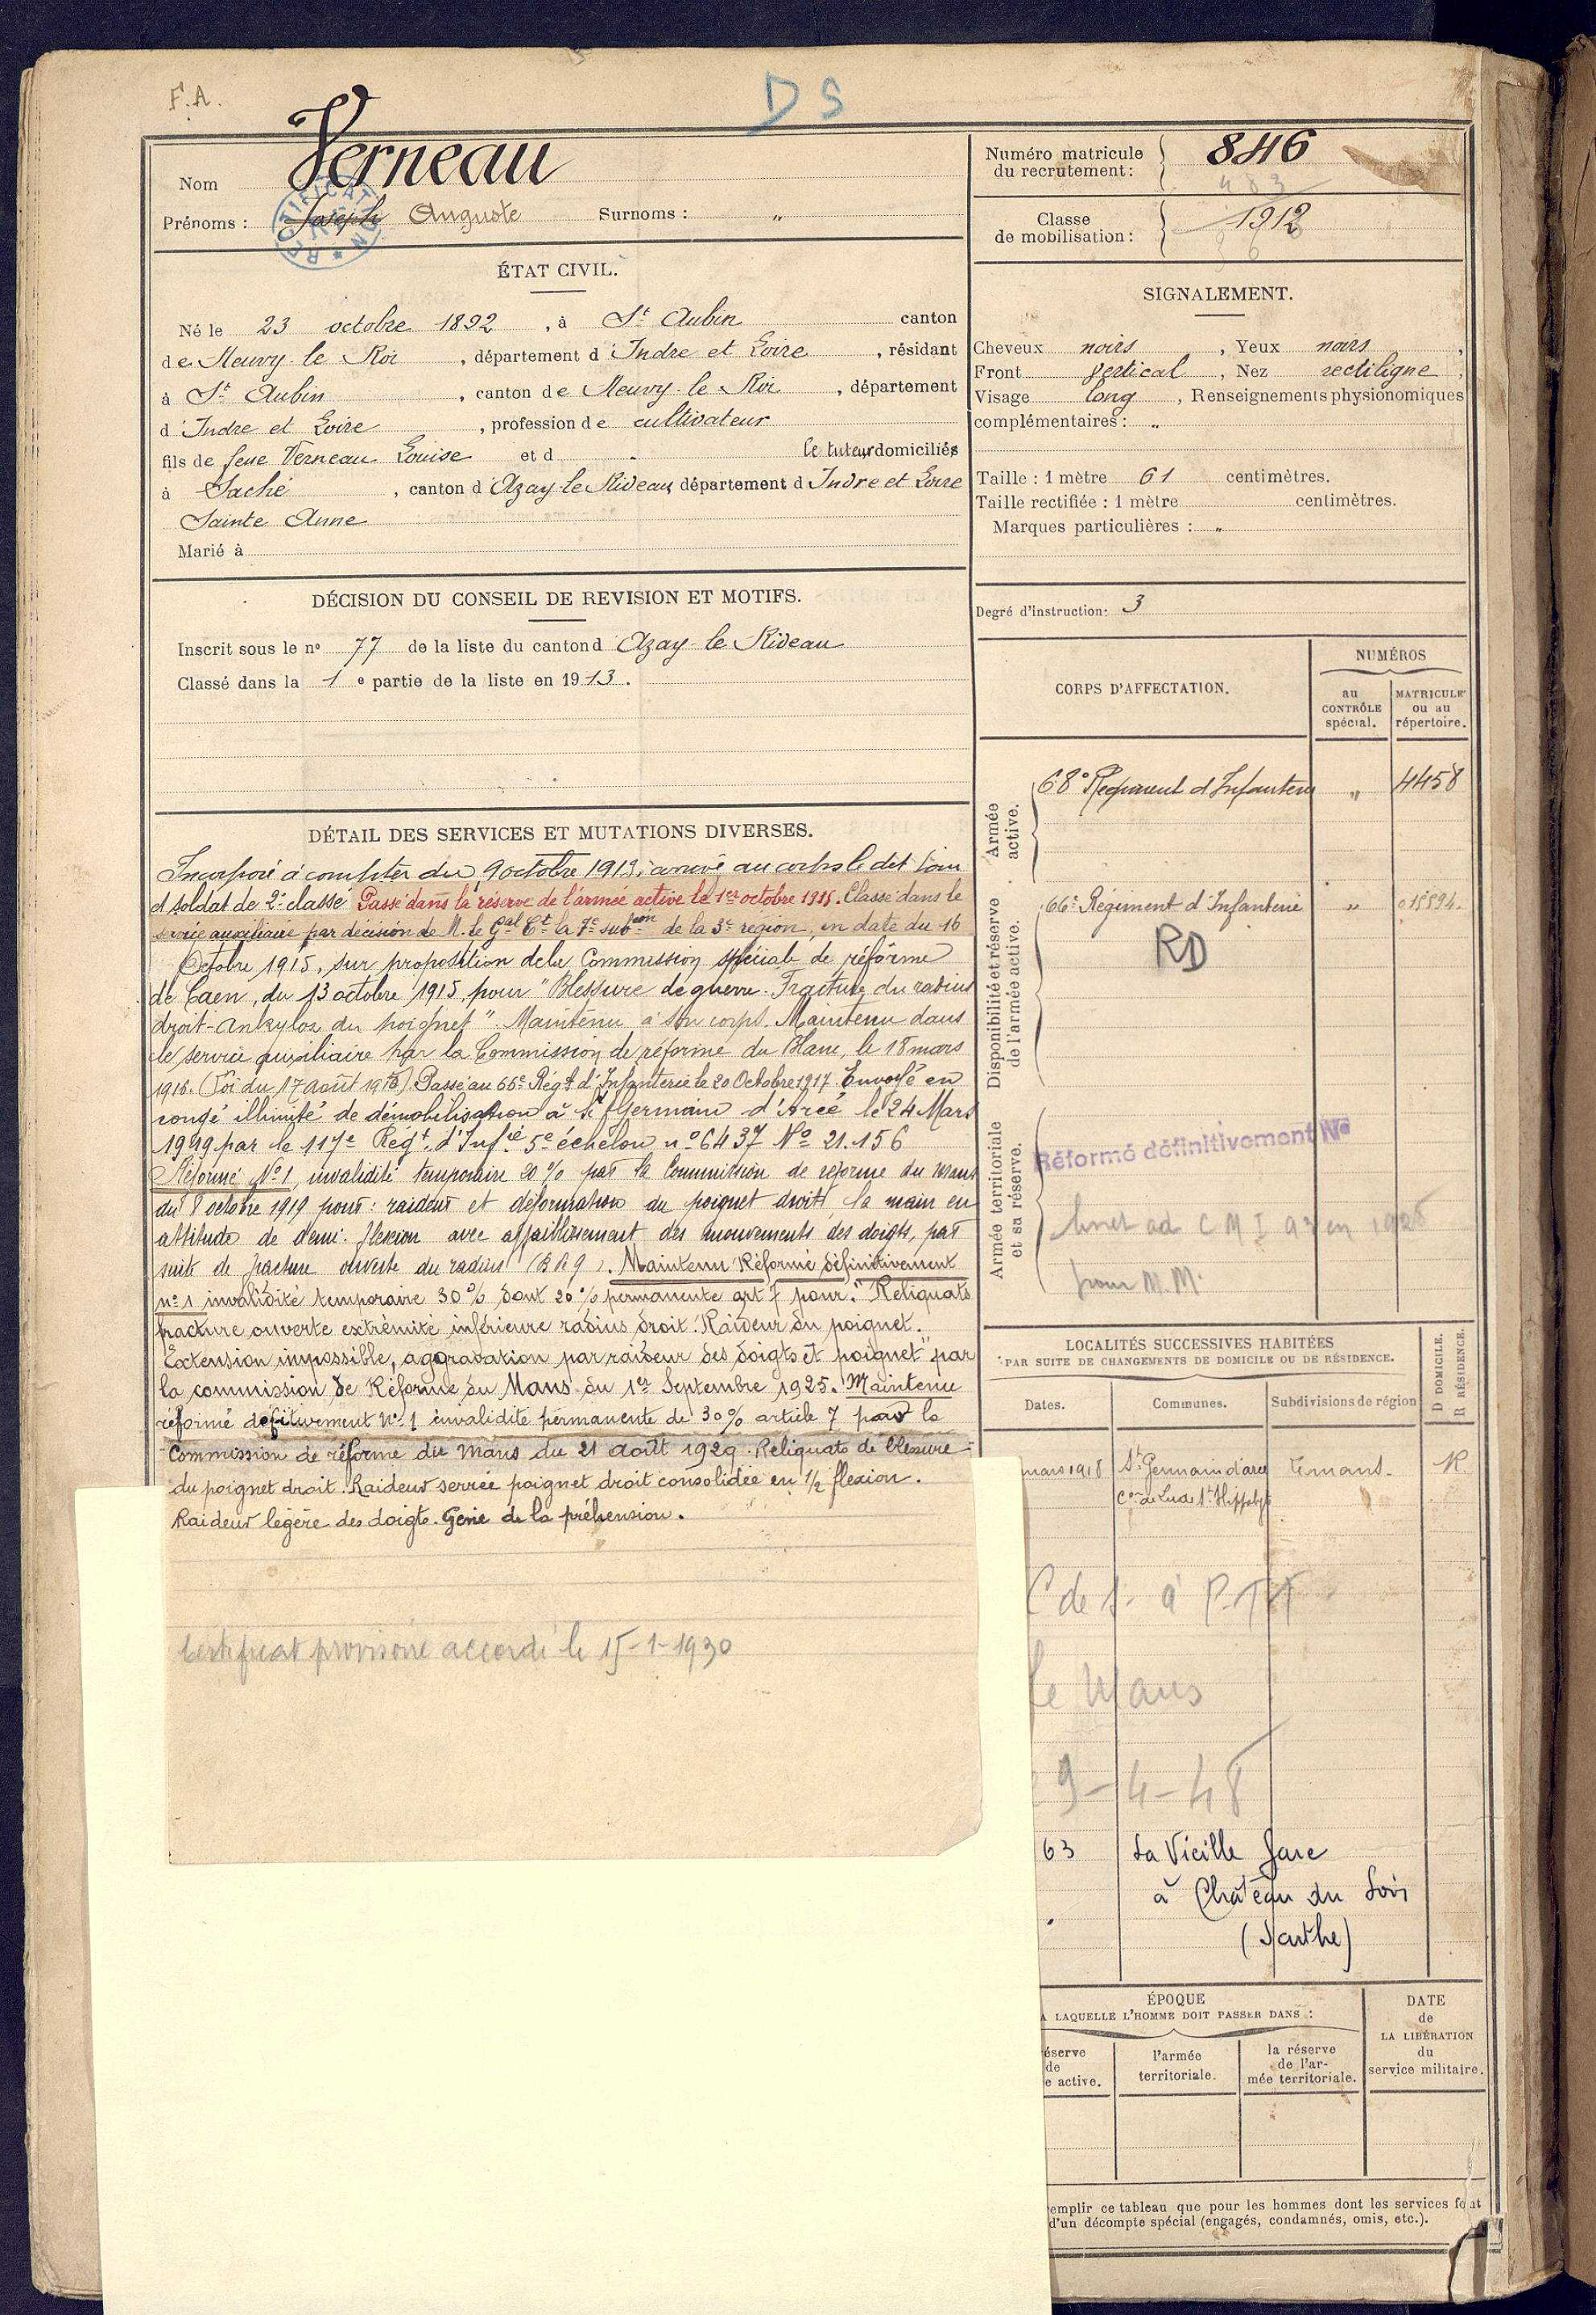 F.A.
DS
Nom Verneau
Prénoms : Joseph Auguste Surnoms : "
RECTIFICATION
ÉTAT CIVIL.
Né le 23 octobre 1892, à St Aubin canton
de Neuvy le Roi, département d'Indre et Loire, résidant
à St Aubin, canton de Neuvy le Roi, département
d'Indre et Loire, profession de cultivateur
fils de feue Verneau Louise et d le tuteur domiciliés
à Saché, canton d'Azay le Rideau, département d'Indre et Loire
Sainte Anne
Marié à
DÉCISION DU CONSEIL DE REVISION ET MOTIFS.
Inscrit sous le no 77 de la liste du canton d'Azay le Rideau
Classé dans la 1e partie de la liste en 1913.
DÉTAIL DES SERVICES ET MUTATIONS DIVERSES.
Incorporé à compter du 9 octobre 1913, arrivé au corps le dit jour
et soldat de 2e classe Passé dans la réserve de l'armée active le 1er octobre 1915. Classé dans le
service auxiliaire par décision de M. le Gal Ct la 7e subon de la 3e région, en date du 16
Octobre 1915, sur proposition de la Commission spéciale de réforme
de Caen, du 13 octobre 1915, pour "Blessure de guerre. Fracture du radius
droit - Ankylose du poignet". Maintenu à son corps. Maintenu dans
le service auxiliaire par la Commission de réforme du Blanc, le 18 mars
1916. (Loi du 17 août 1915) Passé au 66e Régt d'Infanterie le 20 Octobre 1917. Envoyé en
congé illimité de démobilisation à St Germain d'Arcé le 24 Mars
1919 par le 117e Régt d'Infie 5e échelon no 6437 No 21.156
Réformé No 1, invalidité temporaire 20 % par la Commission de réforme du Mans
du 8 octobre 1919 pour : raideur et déformation du poignet droit, la main en
attitude de demi-flexion avec affaiblissement des mouvements des doigts, par
suite de fracture ouverte du radius. Maintenu Réformé définitivement
no 1 invalidité temporaire 30 % dont 20 % permanente art 7 pour: "Reliquats
fracture ouverte extrémité inférieure radius droit. Raideur du poignet.
Extension impossible, aggravation par raideur des doigts et poignet" par
la commission de Réforme du Mans du 1er Septembre 1925. Maintenu
réformé définitivement No 1 invalidité permanente de 30 % article 7 par la
Commission de réforme du Mans du 21 août 1929. Reliquats de blessure
du poignet droit. Raideur serrée poignet droit consolidée en 1/2 flexion.
Raideur légère des doigts. Gêne de la préhension.
Certificat provisoire accordé le 15-1-1930
Numéro matricule du recrutement : 846
483
Classe de mobilisation : 1912
SIGNALEMENT.
Cheveux noirs, Yeux noirs,
Front vertical, Nez rectiligne,
Visage long, Renseignements physionomiques
complémentaires : "
Taille : 1 mètre 61 centimètres.
Taille rectifiée : 1 mètre centimètres.
Marques particulières : "
Degré d'instruction : 3
CORPS D'AFFECTATION.
NUMÉROS
au CONTRÔLE spécial.
MATRICULE ou au répertoire.
Armée active.
68e Régiment d'Infanterie " 4458
Disponibilité et réserve de l'armée active.
66e Régiment d'Infanterie " 015594.
RD
Armée territoriale et sa réserve.
Réformé définitivement No
pour M.M.
LOCALITÉS SUCCESSIVES HABITÉES
PAR SUITE DE CHANGEMENTS DE DOMICILE OU DE RÉSIDENCE.
D DOMICILE.
R RÉSIDENCE.
Dates.
Communes.
Subdivisions de région
mars 1918 St Germain d'arcé R
à P.T.T
le Mans
9-4-48
63 La Vieille Gare
à Château du Loir
(Sarthe)
ÉPOQUE
A LAQUELLE L'HOMME DOIT PASSER DANS :
éserve
de
e active.
l'armée
territoriale.
la réserve
de l'ar-
mée territoriale.
DATE
de
LA LIBÉRATION
du
service militaire.
emplir ce tableau que pour les hommes dont les services font
d'un décompte spécial (engagés, condamnés, omis, etc.).